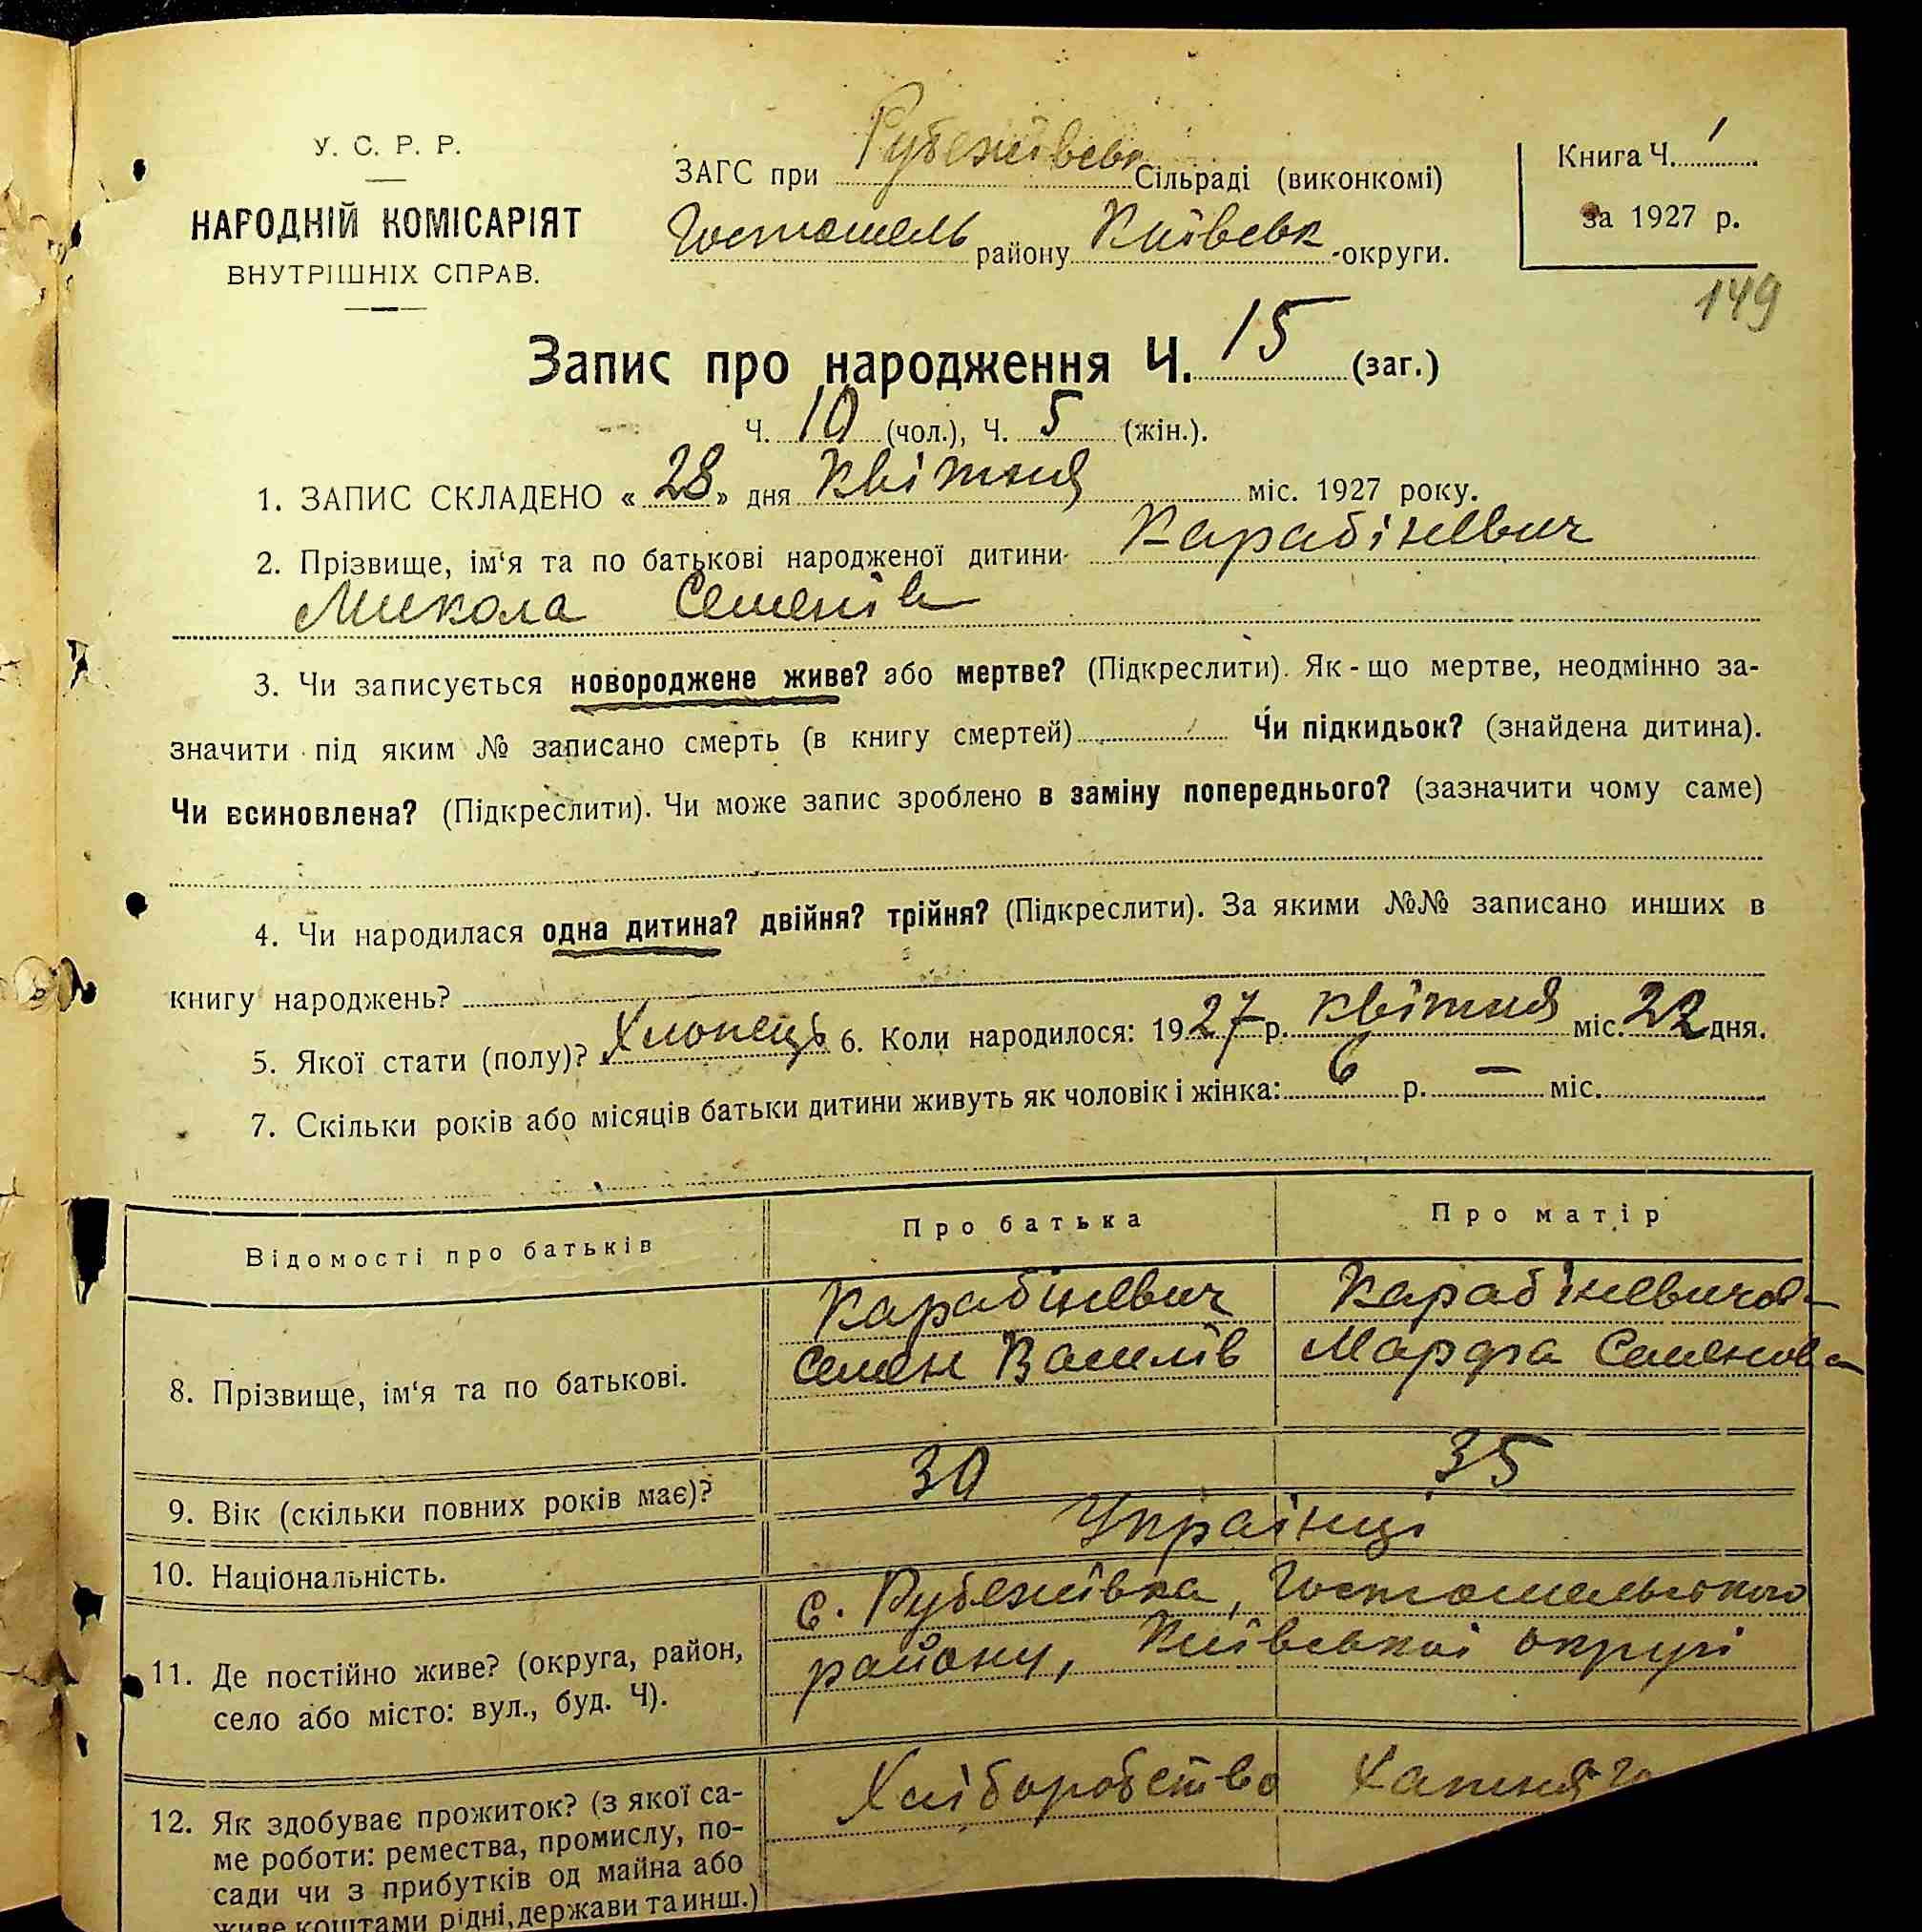 У. С. Р. Р.
НАРОДНІЙ КОМІСАРІЯТ
ВНУТРІШНІХ СПРАВ.
ЗАГС при Рубежівськ Сільраді (виконкомі)
Гостомель району Київськ округи.
Книга Ч. 1
за 1927 р.
149
Запис про народження Ч. 15 (заг.)
Ч. 10 (чол.), Ч. 5 (жін.).
1. ЗАПИС СКЛАДЕНО « 28 » дня Квітня міс. 1927 року.
2. Прізвище, ім‘я та по батькові народженої дитини Карабіневич
Микола Семенів
3. Чи записується новороджене живе? або мертве? (Підкреслити). Як-що мертве, неодмінно за-
значити під яким № записано смерть (в книгу смертей) Чи підкидьок? (знайдена дитина).
Чи всиновлена? (Підкреслити). Чи може запис зроблено в заміну попереднього? (зазначити чому саме)
4. Чи народилася одна дитина? двійня? трійня? (Підкреслити). За якими №№ записано инших в
книгу народжень?
5. Якої стати (полу)? Хлопець 6. Коли народилося: 1927 р. Квітня міс. 22 дня.
7. Скільки років або місяців батьки дитини живуть як чоловік і жінка: 6 р. — міс.
Відомості про батьків Про батька Про матір
8. Прізвище, ім‘я та по батькові.
Карабіневич
Семен Василів
Карабіневичова
Марфа Семенова
9. Вік (скільки повних років має)? 30 35
10. Національність. Українці
11. Де постійно живе? (округа, район,
село або місто: вул., буд. Ч).
с. Рубежівка, Гостомельського
району, Київської округі
12. Як здобуває прожиток? (з якої са-
ме роботи: ремества, промислу, по-
сади чи з прибутків од майна або
живе коштами рідні, держави та инш.)
Хліборобство Хатня